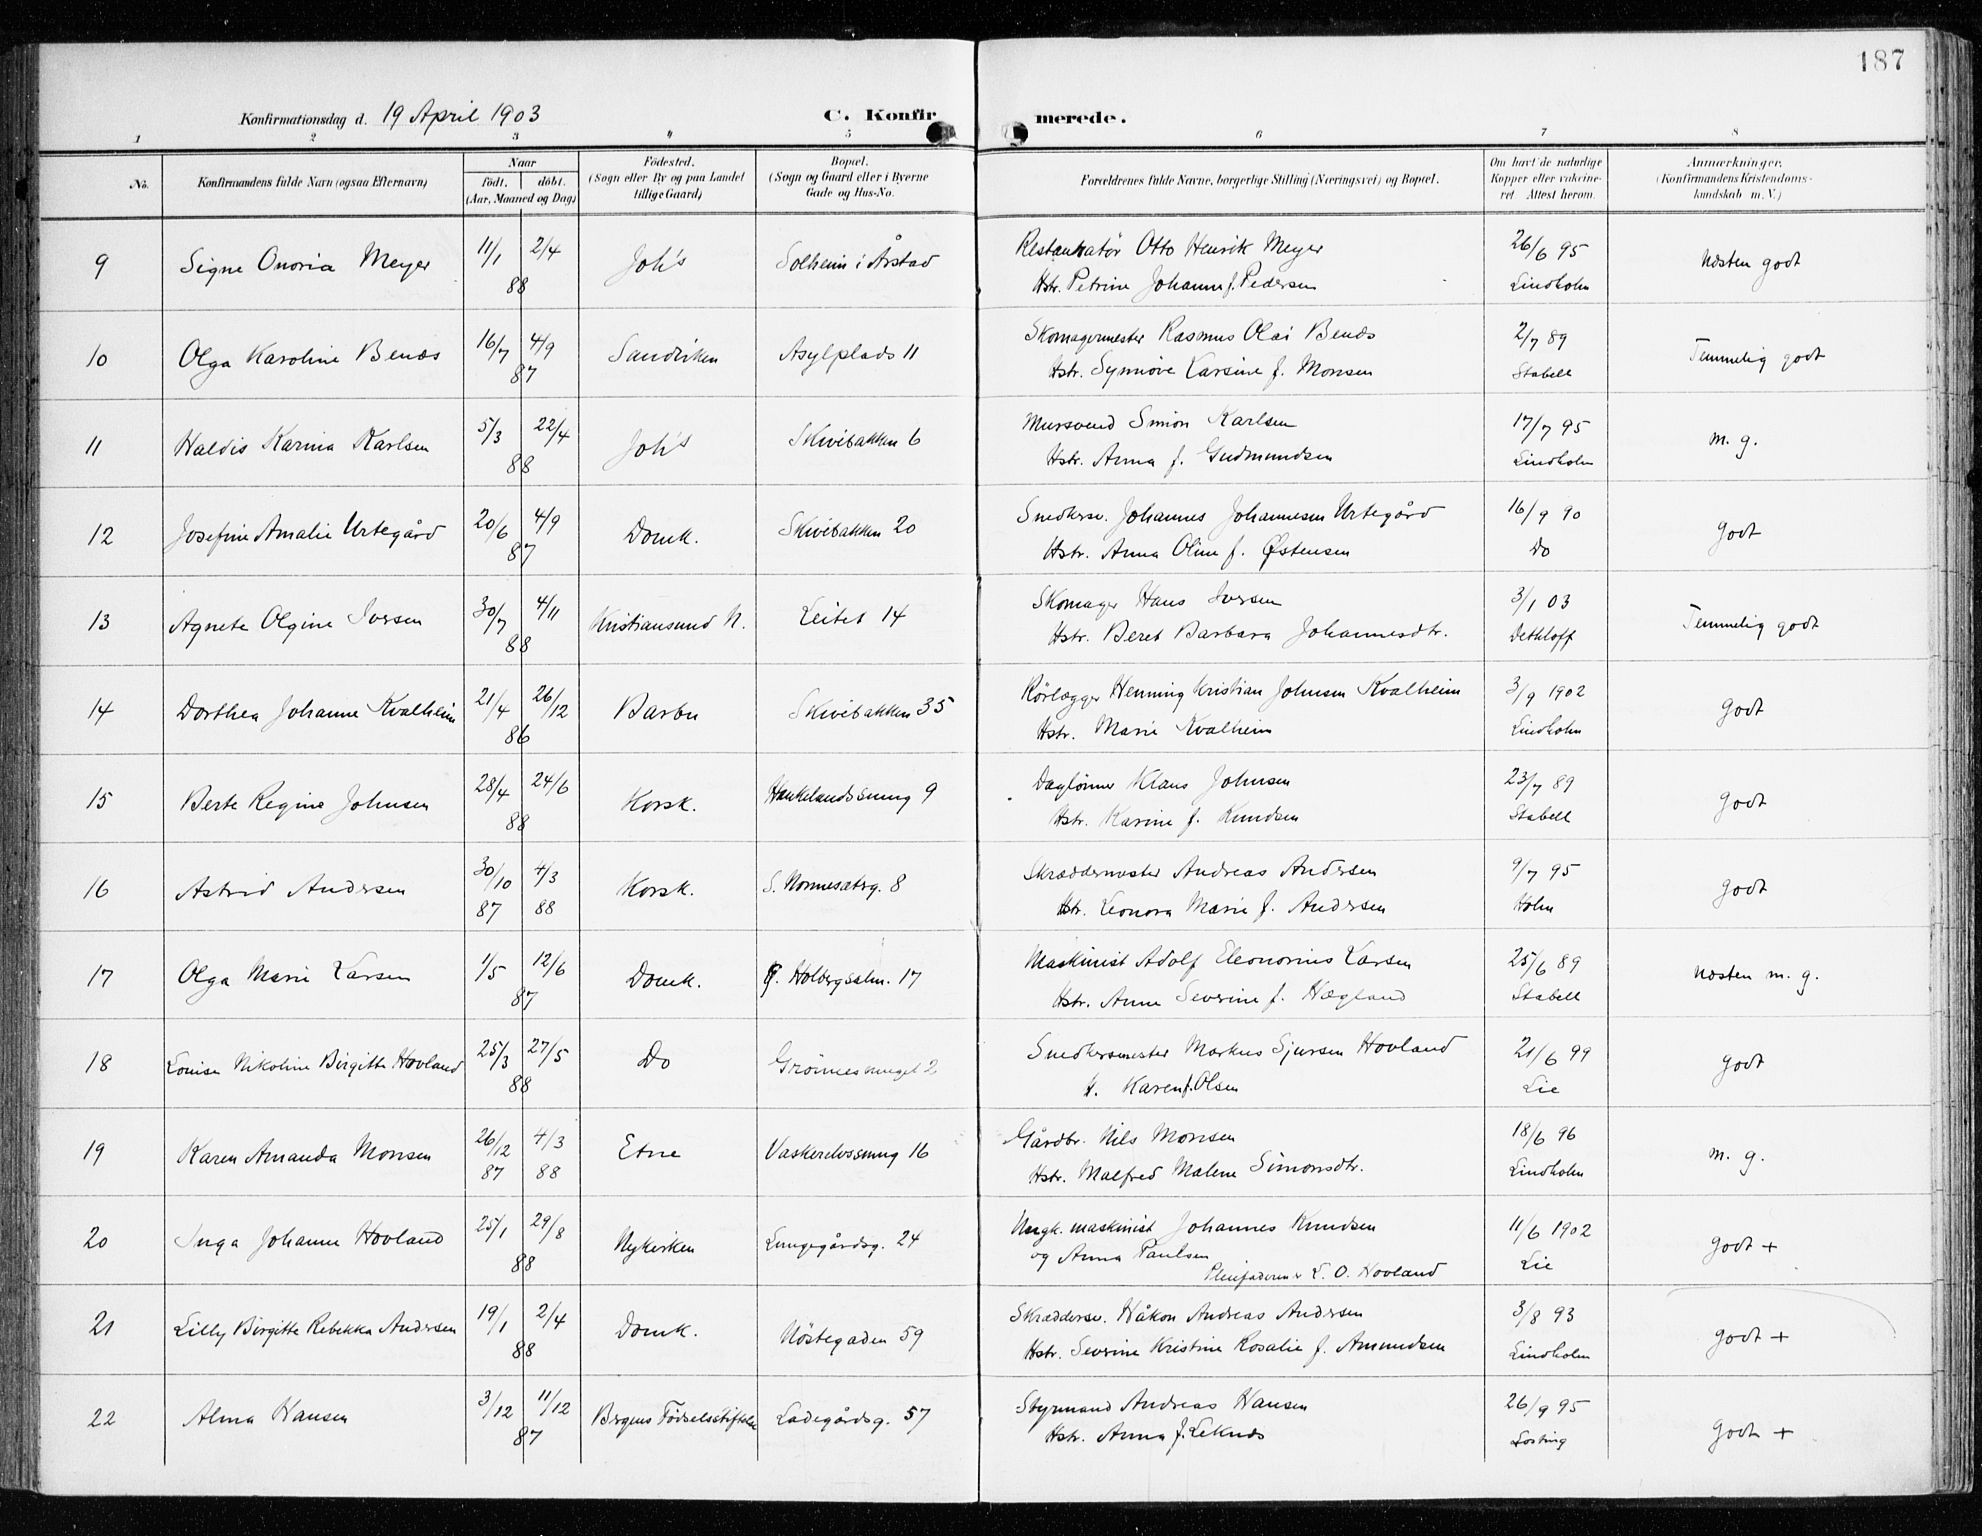 187
Konfirmationsdag d. 19 April 1903 C. Konfirmerede.
1 2 3 " 5 6 7 8
No. Konfirmandens fulde Navn (ogsaa Efternavn) Naar født. døbt. (Aar, Maaned og Dag) Fødested. (Sogn eller By og paa Landet tillige Gaard) Bopæl. (Sogn og Gaard eller i Byerne Gade og Hus-No. Forældrenes fulde Navne, borgerlige Stilling (Næringsvei) og Bopæl. Om havt de naturlige Kopper eller vakcineret Attest herom. Anmærkninger. (Konfirmandens Kristendomskundskab m. V.)
9 Signe Onoria Meyer 11/1 2/4 88 Joh's Solheim i Årstad Restauratør Otto Henrik Meyer 26/6 95 Næsten godt
Hstr. Petrine Johanne f. Pedersen Lindholm
10 Olga Karoline Benæs 16/7 4/9 87 Sandviken Asylplads 11 Skomagermester Rasmus Olai Benæs 2/7 89 Temmelig godt
Hstr. Synnøve Karsine f. Monsen Stabell
11 Haldis Karina Karlsen 5/3 22/4 88 Joh's Skivebakken 6 Mursvend Simon Karlsen 17/7 95 m. g.
Hstr. Anna f. Gudmundsen Lindholm
12 Josefine Amalie Urtegård 20/6 4/9 87 Domk. Skivebakken 20 Snedkersv. Johannes Johannesen Urtegård 16/9 90 godt
Hstr. Anna Oline f. Østensen Do
13 Agnete Olgine Iversen 30/7 4/11 88 Kristiansund N. Leitet 14 Skomager Hans Iversen 3/1 03 Temmelig godt
Hstr. Beret Barbara Johannesdtr. Dethloff
14 Dorthea Johanne Kvalheim 21/4 26/12 86 Barbu Skivebakken 35 Rørlægger Henning Kristian Johnsen Kvalheim 3/9 1902 godt
Hstr. Marie Kvalheim Lindholm
15 Berte Regine Johnsen 28/4 24/6 88 Korsk. Haukelandssmug 9 Daglønner Klaus Johnsen 23/7 89 godt
Hstr. Karine f. Knudsen Stabell
16 Astrid Andersen 30/10 87 4/3 88 Korsk. S. Nonnesæterg. 8 Skræddermester Andreas Andersen 9/7 95 godt
Hstr. Leonora Marie f. Andersen Holm
17 Olga Marie Larsen 1/5 12/6 87 Domk. Holbergsalm. 17 Maskinist Adolf Eleonorius Larsen 25/6 89 Næsten m. g.
Hstr. Anne Severine f. Hægland Stabell
18 Louise Nikoline Birgitte Hovland 25/3 27/5 88 Do Grønnesmuget 2 Snedkermester Markus Sjursen Hovland 21/6 99 godt
H. Karen f. Olsen Lie
19 Karen Amanda Monsen 26/12 87 4/3 88 Etne Vaskerelvssmug 16 Gårdbr. Nils Monsen 18/6 96 m. g.
Hstr. Malfred Malene Simonsdtr. Lindholm
20 Inga Johanne Hovland 25/1 29/8 88 Nykirken Lungegårdsg. 24 Ungk. maskinist Johannes Knudsen 11/6 1902 godt +
og Anna Paulsen Lie
Pleiefaderen L. O. Hovland
21 Lilly Birgitte Rebekka Andersen 19/1 2/4 88 Domk. Nöstegaden 59 Skræddersv. Håkon Andreas Andersen 3/8 93 godt +
Hstr. Severine Kristine Rosalie f. Amundsen Lindholm
22 Alma Hansen 3/12 11/12 87 Bergens Fødselsstiftelse Ladegårdsg. 57 Styrmand Andreas Hansen 26/9 95 godt +
Hstr. Anna f. Leknæs